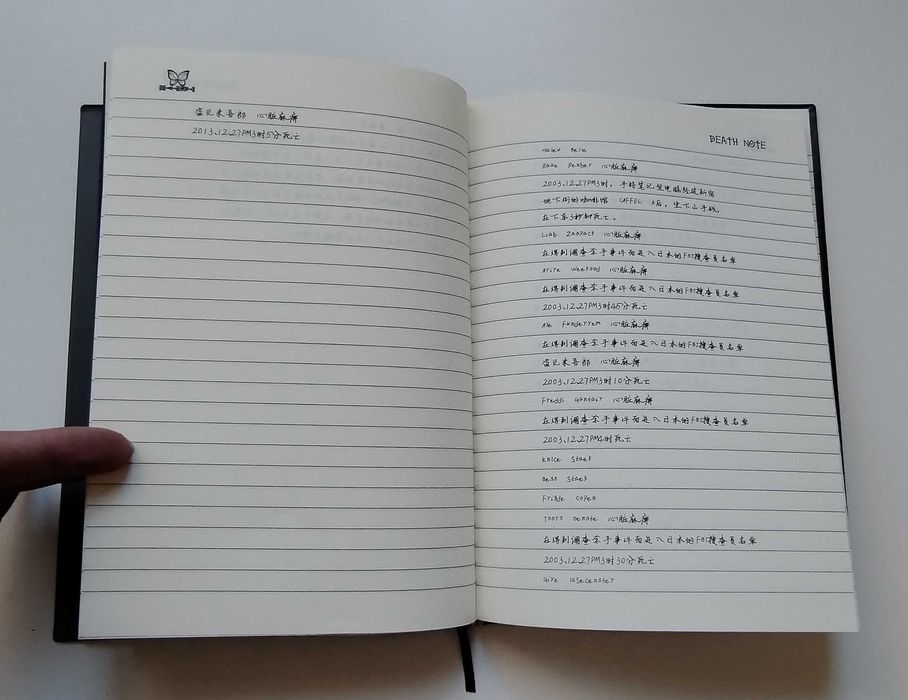 当见来吾郎 心脏麻痹
2013.12.27PM3时5分死亡
DEATH NOTE
Haley Belle
Raye Penber 心脏麻痹
2003.12.27PM3时，手持笔记型电脑经过新宿
地下街的咖啡馆 CAFFEL A后，坐下山手线，
在下车3秒钟死亡。
Lian Zaopack 心脏麻痹
在得到调查杀手事件而进入日本的FBI搜查员名单
Arire Weekood 心脏麻痹
在得到调查杀手事件而进入日本的FBI搜查员名单
2003.12.27PM3时45分死亡
Ale Funderrem 心脏麻痹
在得到调查杀手事件而进入日本的FBI搜查员名单
当见来吾郎 心脏麻痹
2003.12.27PM3时10分死亡
Freddi Guntair 心脏麻痹
在得到调查杀手事件而进入日本的FBI搜查员名单
2003.12.27PM4时死亡
Knice Staek
Bess Staek
Frigde Copen
Toors Denote 心脏麻痹
在得到调查杀手事件而进入日本的FBI搜查员名单
2003.12.27PM3时30分死亡
Gire